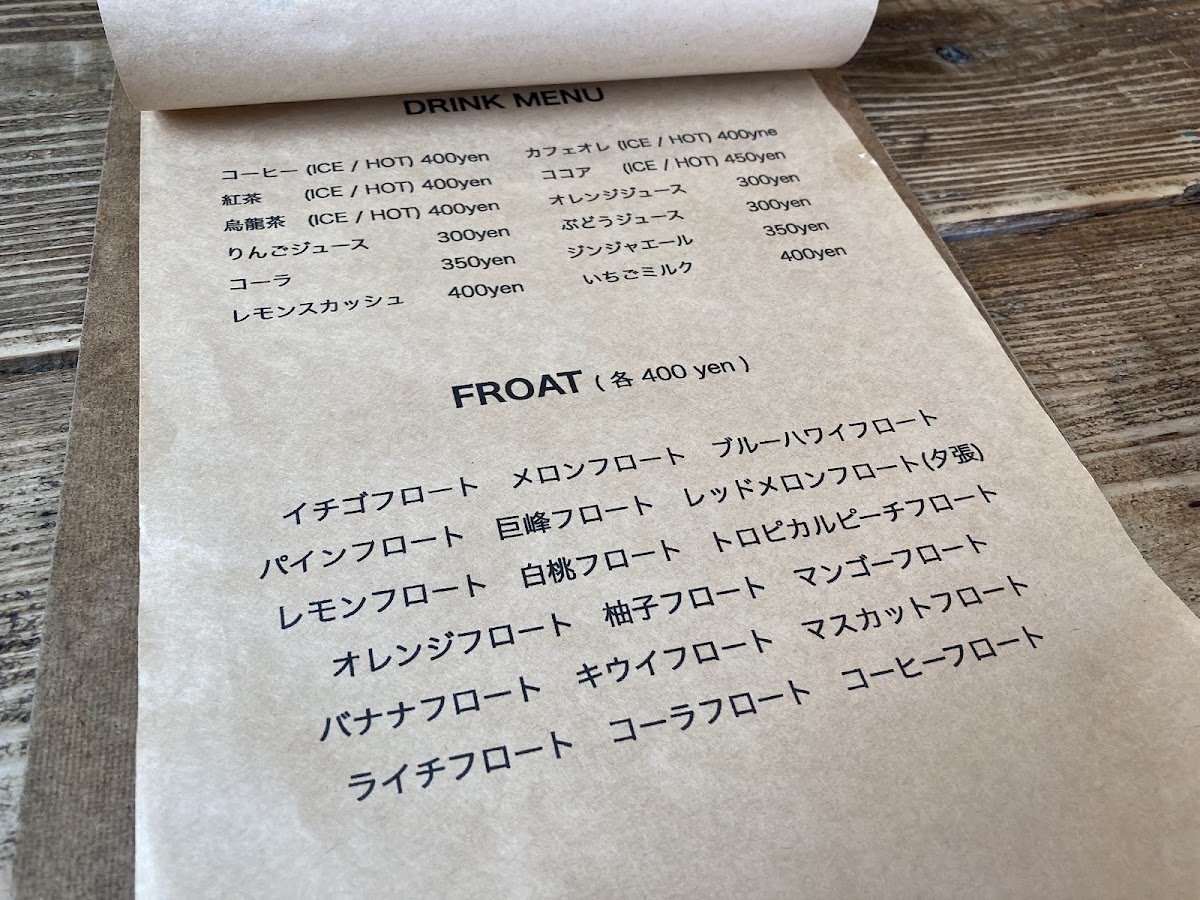 DRINK MENU
コーヒー (ICE / HOT) 400yen カフェオレ (ICE / HOT) 400yne
紅茶 (ICE / HOT) 400yen ココア (ICE / HOT) 450yen
烏龍茶 (ICE / HOT) 400yen オレンジジュース 300yen
りんごジュース 300yen ぶどうジュース 300yen
コーラ 350yen ジンジャエール 350yen
レモンスカッシュ 400yen いちごミルク 400yen
FROAT ( 各 400 yen )
イチゴフロート メロンフロート ブルーハワイフロート
パインフロート 巨峰フロート レッドメロンフロート(夕張)
レモンフロート 白桃フロート トロピカルピーチフロート
オレンジフロート 柚子フロート マンゴーフロート
バナナフロート キウイフロート マスカットフロート
ライチフロート コーラフロート コーヒーフロート